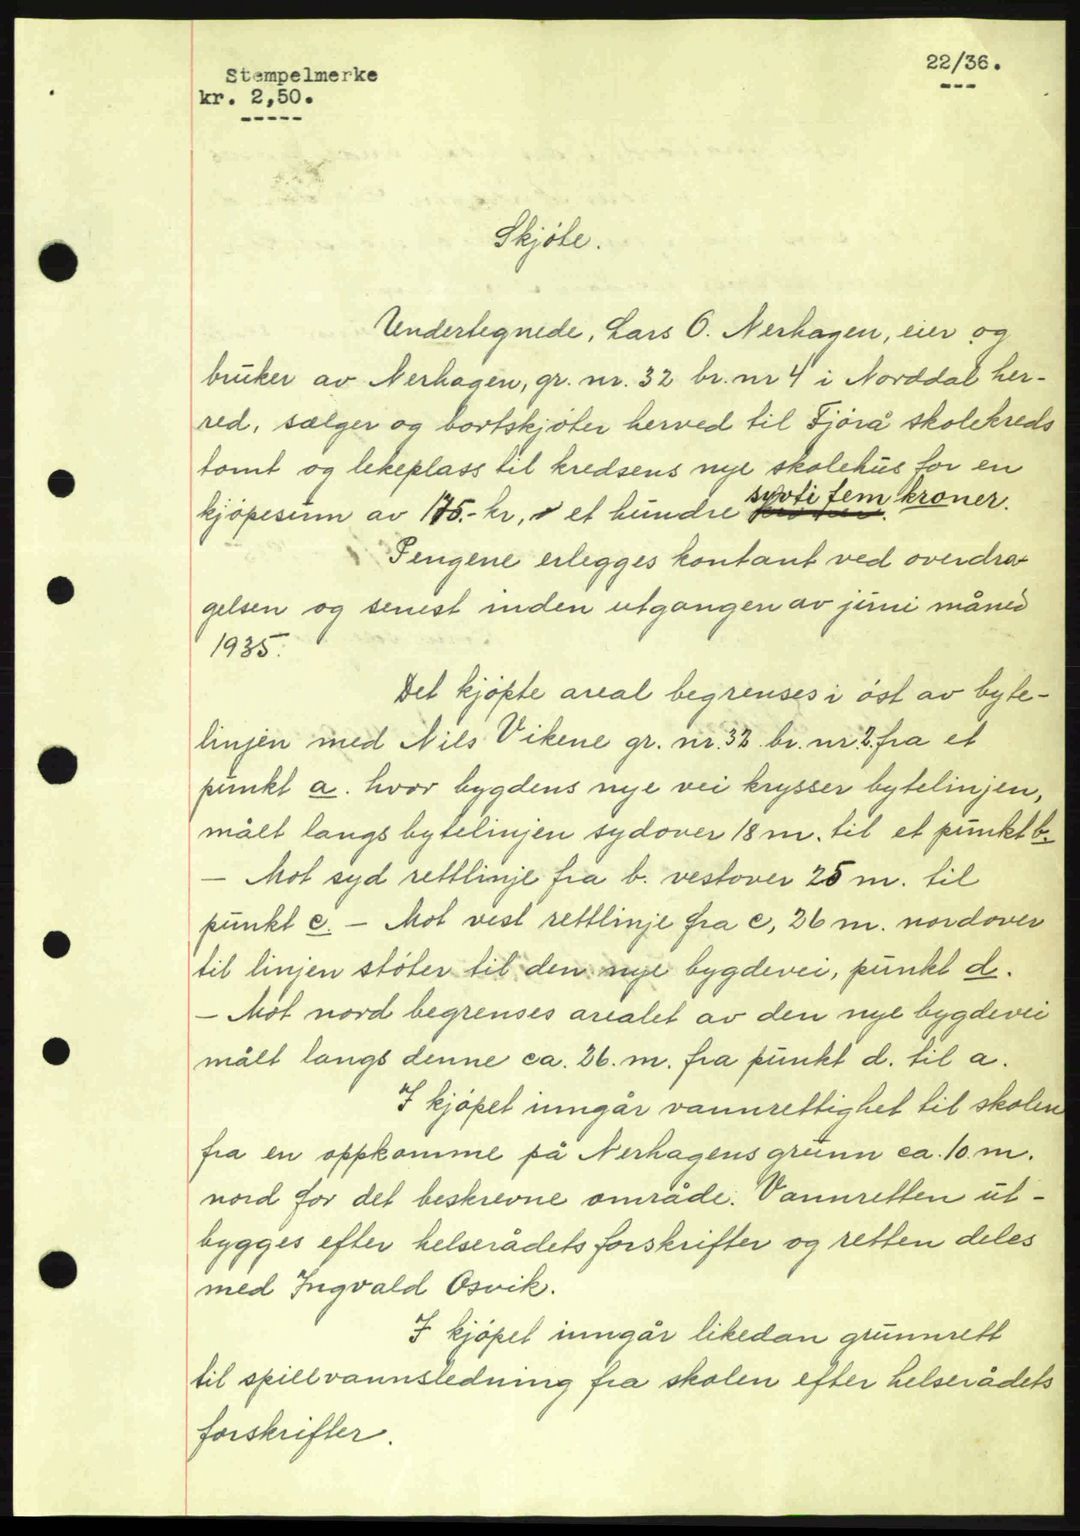 Stempelmerke
kr. 2,50.
-----
22/36.
---
Skjøte.
Undertegnede, Lars O. Nerhagen, eier og
bruker av Nerhagen, gr. nr. 32 br. nr 4 i Norddal her-
red, sælger og bortskjøter herved til Fjørå skolekreds
tomt og lekeplass til kredsens nye skolehus for en
kjøpesum av 175.- kr, et hundre sytti fem kroner.
Pengene erlegges kontant ved overdra-
gelsen og senest inden utgangen av juni måned
1935.
Det kjøpte areal begrenses i øst av byte-
linjen med Nils Vikene gr. nr. 32 br. nr. 2. fra et
punkt a. hvor bygdens nye vei krysser bytelinjen,
målt langs bytelinjen sydover 18 m. til et punkt b.
— Mot syd rettlinje fra b. vestover 25 m. til
punkt c. — Mot vest rettlinje fra c, 26 m. nordover
til linjen støter til den nye bygdevei, punkt d.
— Mot nord begrenses arealet av den nye bygdevei
målt langs denne ca. 26. m. fra punkt d. til a.
I kjøpet inngår vannrettighet til skolen
fra en oppkomme på Nerhagens grunn ca. 10. m.
nord for det beskrevne område. Vannretten ut-
bygges efter helserådets forskrifter og retten deles
med Ingvald Osvik.
I kjøpet inngår likedan grunnrett
til spillvannsledning fra skolen efter helserådets
forskrifter.